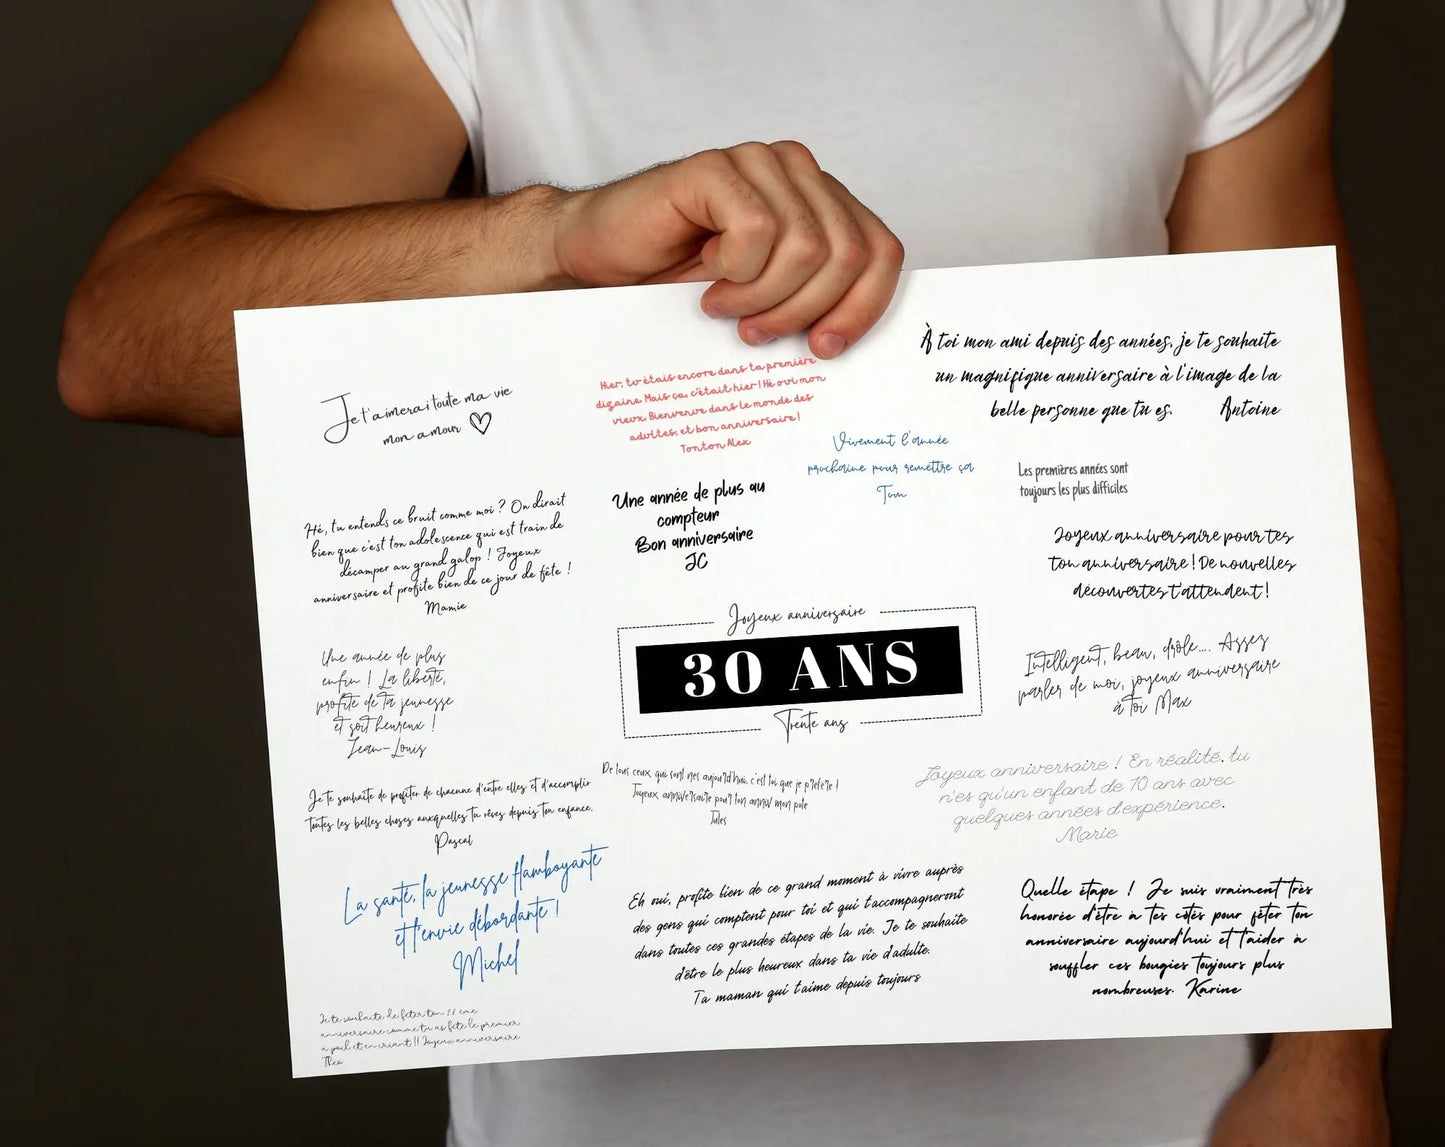 Je t'aimerai toute ma vie
mon amour
Hier, tu étais encore dans ta première
dizaine. Mais ça, c'était hier ! Hé oui mon
vieux. Bienvenue dans le monde des
adultes, et bon anniversaire !
Tonton Alex
À toi mon ami depuis des années, je te souhaite
un magnifique anniversaire à l'image de la
belle personne que tu es. Antoine
Vivement l'année
prochaine pour remettre ça
Tom
Les premières années sont
toujours les plus difficiles
Hé, tu entends ce bruit comme moi ? On dirait
bien que c'est ton adolescence qui est train de
décamper au grand galop ! Joyeux
anniversaire et profite bien de ce jour de fête !
Mamie
Une année de plus au
compteur
Bon anniversaire
JC
Joyeux anniversaire pour tes
ton anniversaire ! De nouvelles
découvertes t'attendent !
Joyeux anniversaire
30 ANS
Trente ans
Une année de plus
enfin ! La liberté,
profite de ta jeunesse
et soit heureux !
Jean-Louis
Intelligent, beau, drôle.... Assez
parler de moi, joyeux anniversaire
à toi Max
De tous ceux qui sont nés aujourd'hui, c'est toi que je préfère !
Joyeux anniversaire pour ton anniv mon pote
Jules
Joyeux anniversaire ! En réalité, tu
n'es qu'un enfant de 10 ans avec
quelques années d'expérience.
Marie
Je te souhaite de profiter de chacune d'entre elles et d'accomplir
toutes les belles choses auxquelles tu rêves depuis ton enfance.
Pascal
La santé, la jeunesse flamboyante
et l'envie débordante !
Michel
Eh oui, profite bien de ce grand moment à vivre auprès
des gens qui comptent pour toi et qui t'accompagneront
dans toutes ces grandes étapes de la vie. Je te souhaite
d'être le plus heureux dans ta vie d'adulte.
Ta maman qui t'aime depuis toujours
Quelle étape ! Je suis vraiment très
honorée d'être à tes côtés pour fêter ton
anniversaire aujourd'hui et t'aider à
souffler ces bougies toujours plus
nombreuses. Karine
Je te souhaite de fêter ton ème
anniversaire comme tu as fêté le premier
à poil et en criant !! Joyeux anniversaire
Théo